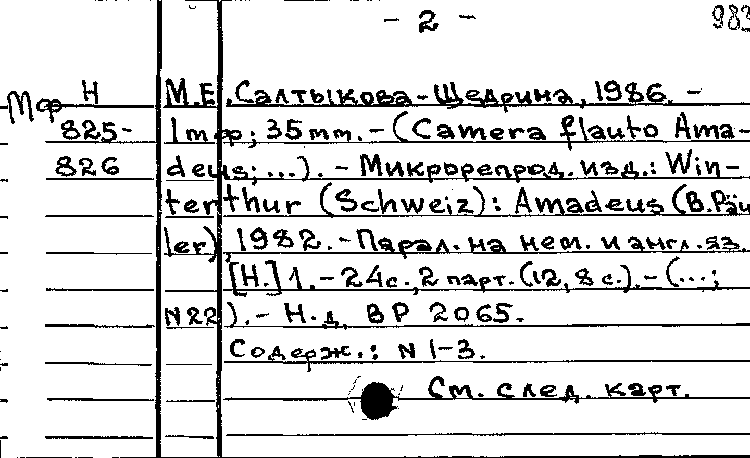 - 2 -
983
Мф Н М.Е.Салтыкова-Щедрина, 1986. -
825- 1 мф; 35 mm. - (Camera flauto Ama-
826 deus; ...). - Микрорепрод. изд.: Win-
terthur (Schweiz): Amadeus (B.Päu
ler), 1982. - Парал. на нем. и англ. яз.
[Н.] 1. - 24 с., 2 парт. (12, 8 с.). - (...;
N22). - Н.д. ВР 2065.
Содерж.: N 1-3.
См. след. карт.